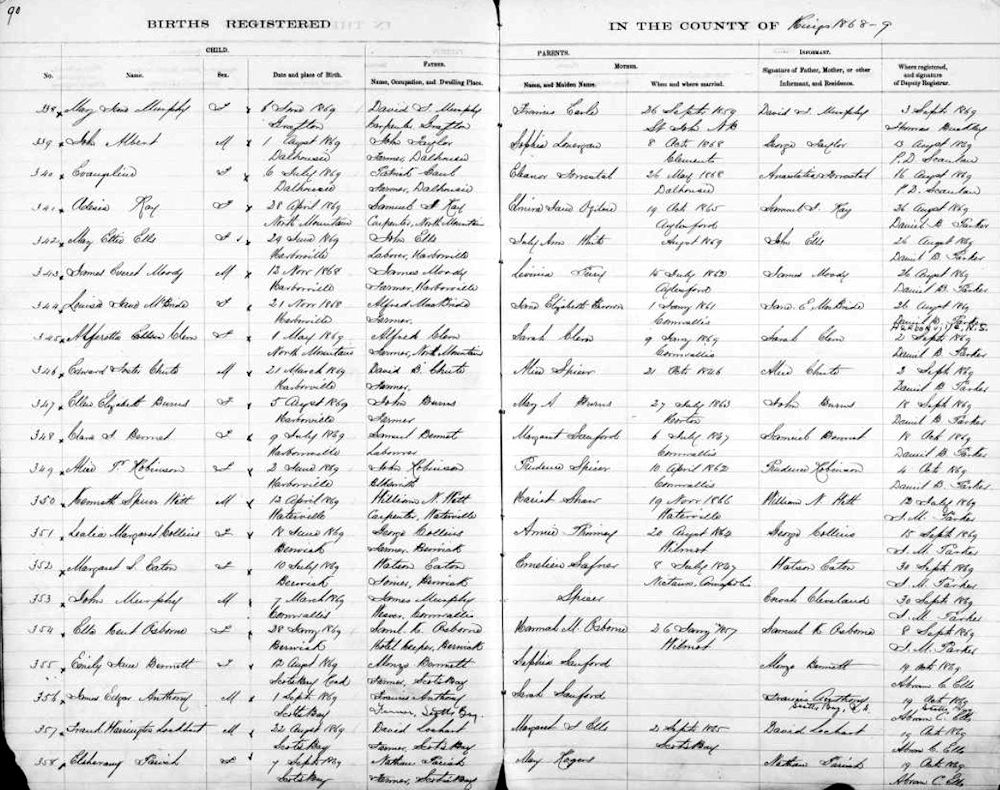 90
BIRTHS REGISTERED IN THE COUNTY OF Kings 1868-9
CHILD. PARENTS. INFORMANT.
FATHER. MOTHER.
No. Name. Sex. Date and place of Birth. Name, Occupation, and Dwelling Place. Name, and Maiden Name. When and where married. Signature of Father, Mother, or other Informant, and Residence. Where registered, and signature of Deputy Registrar.
338 Mary Murphy F 6 June 1869 David Murphy Earle 26 Sept. 1859 David Murphy 3 Sept. 1869
Grafton Carpenter Grafton St John NB Thomas
339 John Albert M 1 August 1869 John Taylor Sophia Lonergan 8 Octr 1868 George Taylor 13 August 1869
Dalhousie Farmer, Dalhousie Clements P.D. Scanlan
340 Evangeline F 6 July 1869 Patrick Eleanor Forrestal 26 May 1868 Forrestal 16 August 1869
Dalhousie Farmer, Dalhousie Dalhousie P.D. Scanlan
341 Kay F 28 April 1869 Samuel Kay Elmira Jane 19 Oct. 1865 Samuel Kay 26 August 1869
North Mountain Carpenter, North Mountain Aylesford Daniel B. Parker
342 Mary Ettie Ells F 29 June 1869 John Ells July Ann White August 1859 John Ells 26 August 1869
Harborville Laborer, Harborville Daniel B. Parker
343 James Everet Moody M 12 Novr 1868 James Moody Lovinia 15 July 1862 James Moody 26 August 1869
Harborville Farmer, Harborville Aylesford Daniel B. Parker
344 Louisa Jane McBride F 21 Novr 1868 Alfred MacBride Jane Elizabeth 1 Janry 1861 Jane E. MacBride 26 August 1869
Harborville Farmer. Cornwallis Daniel B. Parker
Harborville, N.S.
345 Clem F 1 May 1869 Alfred Clem Sarah Clem 9 Janry 1869 Sarah Clem 2 Septr 1869
North Mountain Farmer, North Mountain Cornwallis Daniel B Parker
346 Edward Foster Chute M 21 March 1869 David B. Chute Alice Spicer 21 Octr 1846 Alice Chute 2 Septr 1869
Harborville Farmer. Daniel B. Parker
347 Ellen Elizabeth Burns F 5 August 1869 John Burns Mary A Burns 27 July 1863 John Burns 18 Septr 1869
Harborville Farmer Horton Daniel B. Parker
348 Clara Bennet F 9 July 1869 Samuel Bennet Margaret Sanford 6 July 1867 Samuel Bennet 18 Octr 1869
Harborville Laborer Cornwallis Daniel B. Parker
349 Alice Robinson F 2 June 1869 John Robinson Prudence Spicer 10 April 1862 Prudence Robinson 4 Octr 1869
Harborville Blksmith Cornwallis Daniel B. Parker
350 Kenneth Spurr M 12 April 1869 William N. Harriet Shaw 19 Novr 1866 William N. 12 July 1869
Waterville Carpenter, Waterville Waterville M. Parker
351 Margaret Collins F 18 June 1869 George Collins Annie 20 August 1864 George Collins 15 Septr 1869
Berwick Farmer, Berwick Wilmot M. Parker
352 Margaret Eaton F 10 July 1869 Watson Eaton 8 July 1867 Watson Eaton 30 Septr 1869
Berwick Farmer, Berwick Annapolis M. Parker
353 John Murphy M 7 March 1869 James Murphy Spicer Enoch Cleveland 30 Septr 1869
Cornwallis Cornwallis M. Parker
354 Ella Kent Osborne F 28 Janry 1869 Saml. K. Osborne Hannah M. Osborne 26 Janry 1857 Samuel K. Osborne 8 Septr 1869
Berwick Hotel keeper, Berwick Wilmot M. Parker
355 Emily Jane Bennett F 12 August 1869 Bennett Sophia Sanford Bennett 19 Octr 1869
Scots Bay Road Farmer, Scots Bay Abram C. Ells
356 James Edgar Anthony M 1 Sept. 1869 Francis Anthony Sarah Sanford Francis Anthony 19 Octr 1869
Scotts Bay Farmer, Scotts Bay Scotts Bay, N.S. Abram C. Ells
357 Frank Harrington Lockhart M 22 August 1869 David Lockhart Margaret Ells 2 Septr 1865 David Lockhart 19 Octr 1869
Scots Bay Farmer, Scots Bay Scots Bay Abram C. Ells
358 Parish F 7 Septr 1869 Nathan Parish Mary Rogers Nathan Parish 19 Octr 1869
Scots Bay Farmer, Scots Bay Abram C. Ells